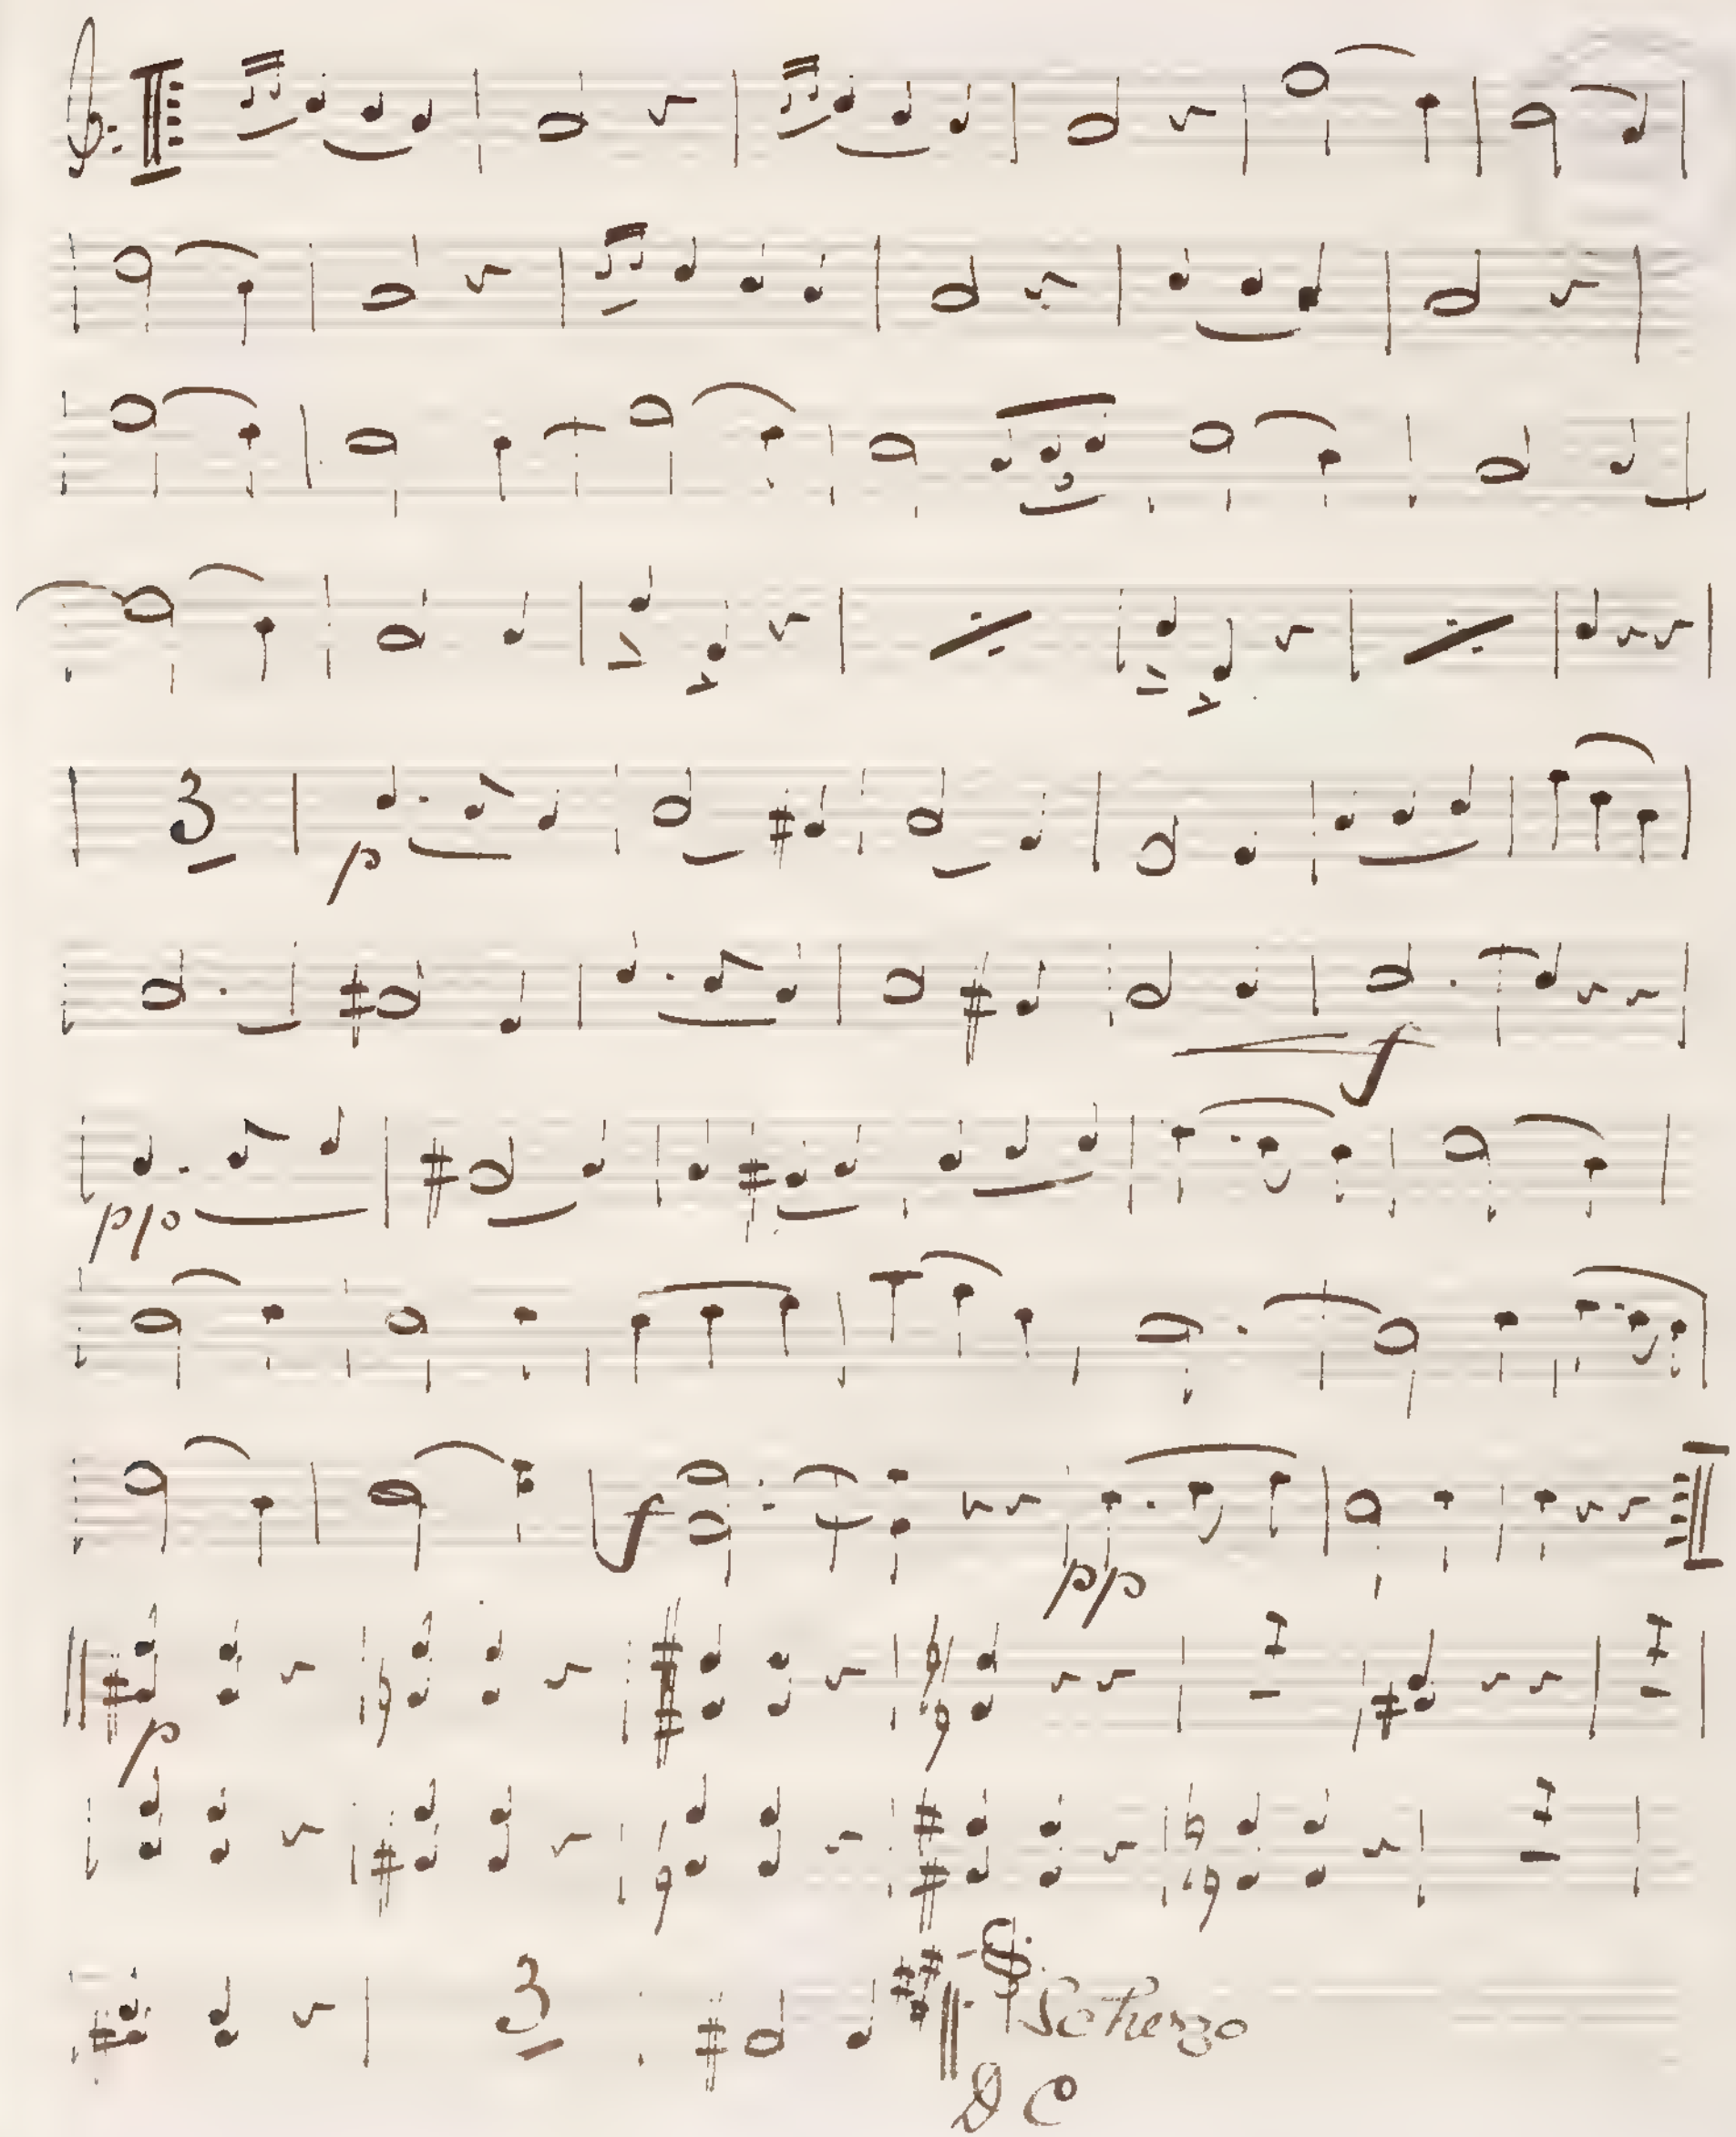 3
3
p
f
pp
f
pp
p
3
Scherzo
D C